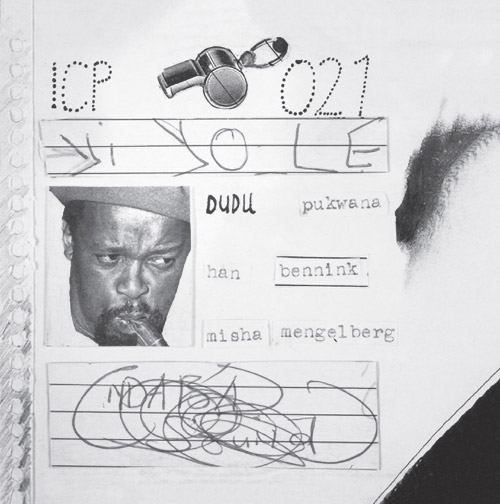 ICP 021
Yi YOLE
DUDU pukwana
han bennink
misha mengelberg
NDABA